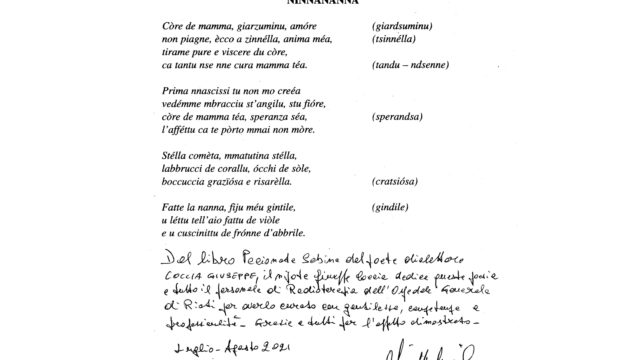 NINNANANNA
Còre de mamma, giarzuminu, amóre (giardsuminu)
non piagne, ècco a zinnélla, anima méa, (tsinnélla)
tirame pure e viscere du còre,
ca tantu nse nne cura mamma téa. (tandu – ndsenne)
Prima nnascissi tu non mo creéa
vedémme mbracciu st'angilu, stu fióre,
còre de mamma téa, speranza séa, (sperandsa)
l'afféttu ca te pòrto mmai non mòre.
Stélla comèta, mmatutina stélla,
labbrucci de corallu, ócchi de sòle,
boccuccia grazïósa e risarèlla. (cratsiósa)
Fatte la nanna, fiju méu gintile, (gindile)
u léttu tell'aio fattu de viòle
e u cuscinittu de frónne d'abbrile.
Dal libro Pecionate Sabina del poeta dialettale
COCCIA GIUSEPPE, il nipote Giuseppe Coccia dedica questa poesia
a tutto il personale di Radioterapia dell'Ospedale Generale
di Rieti per averlo curato con gentilezza, competenza e
professionalità - Grazie a tutti per l'affetto dimostrato -
Luglio - Agosto 2021